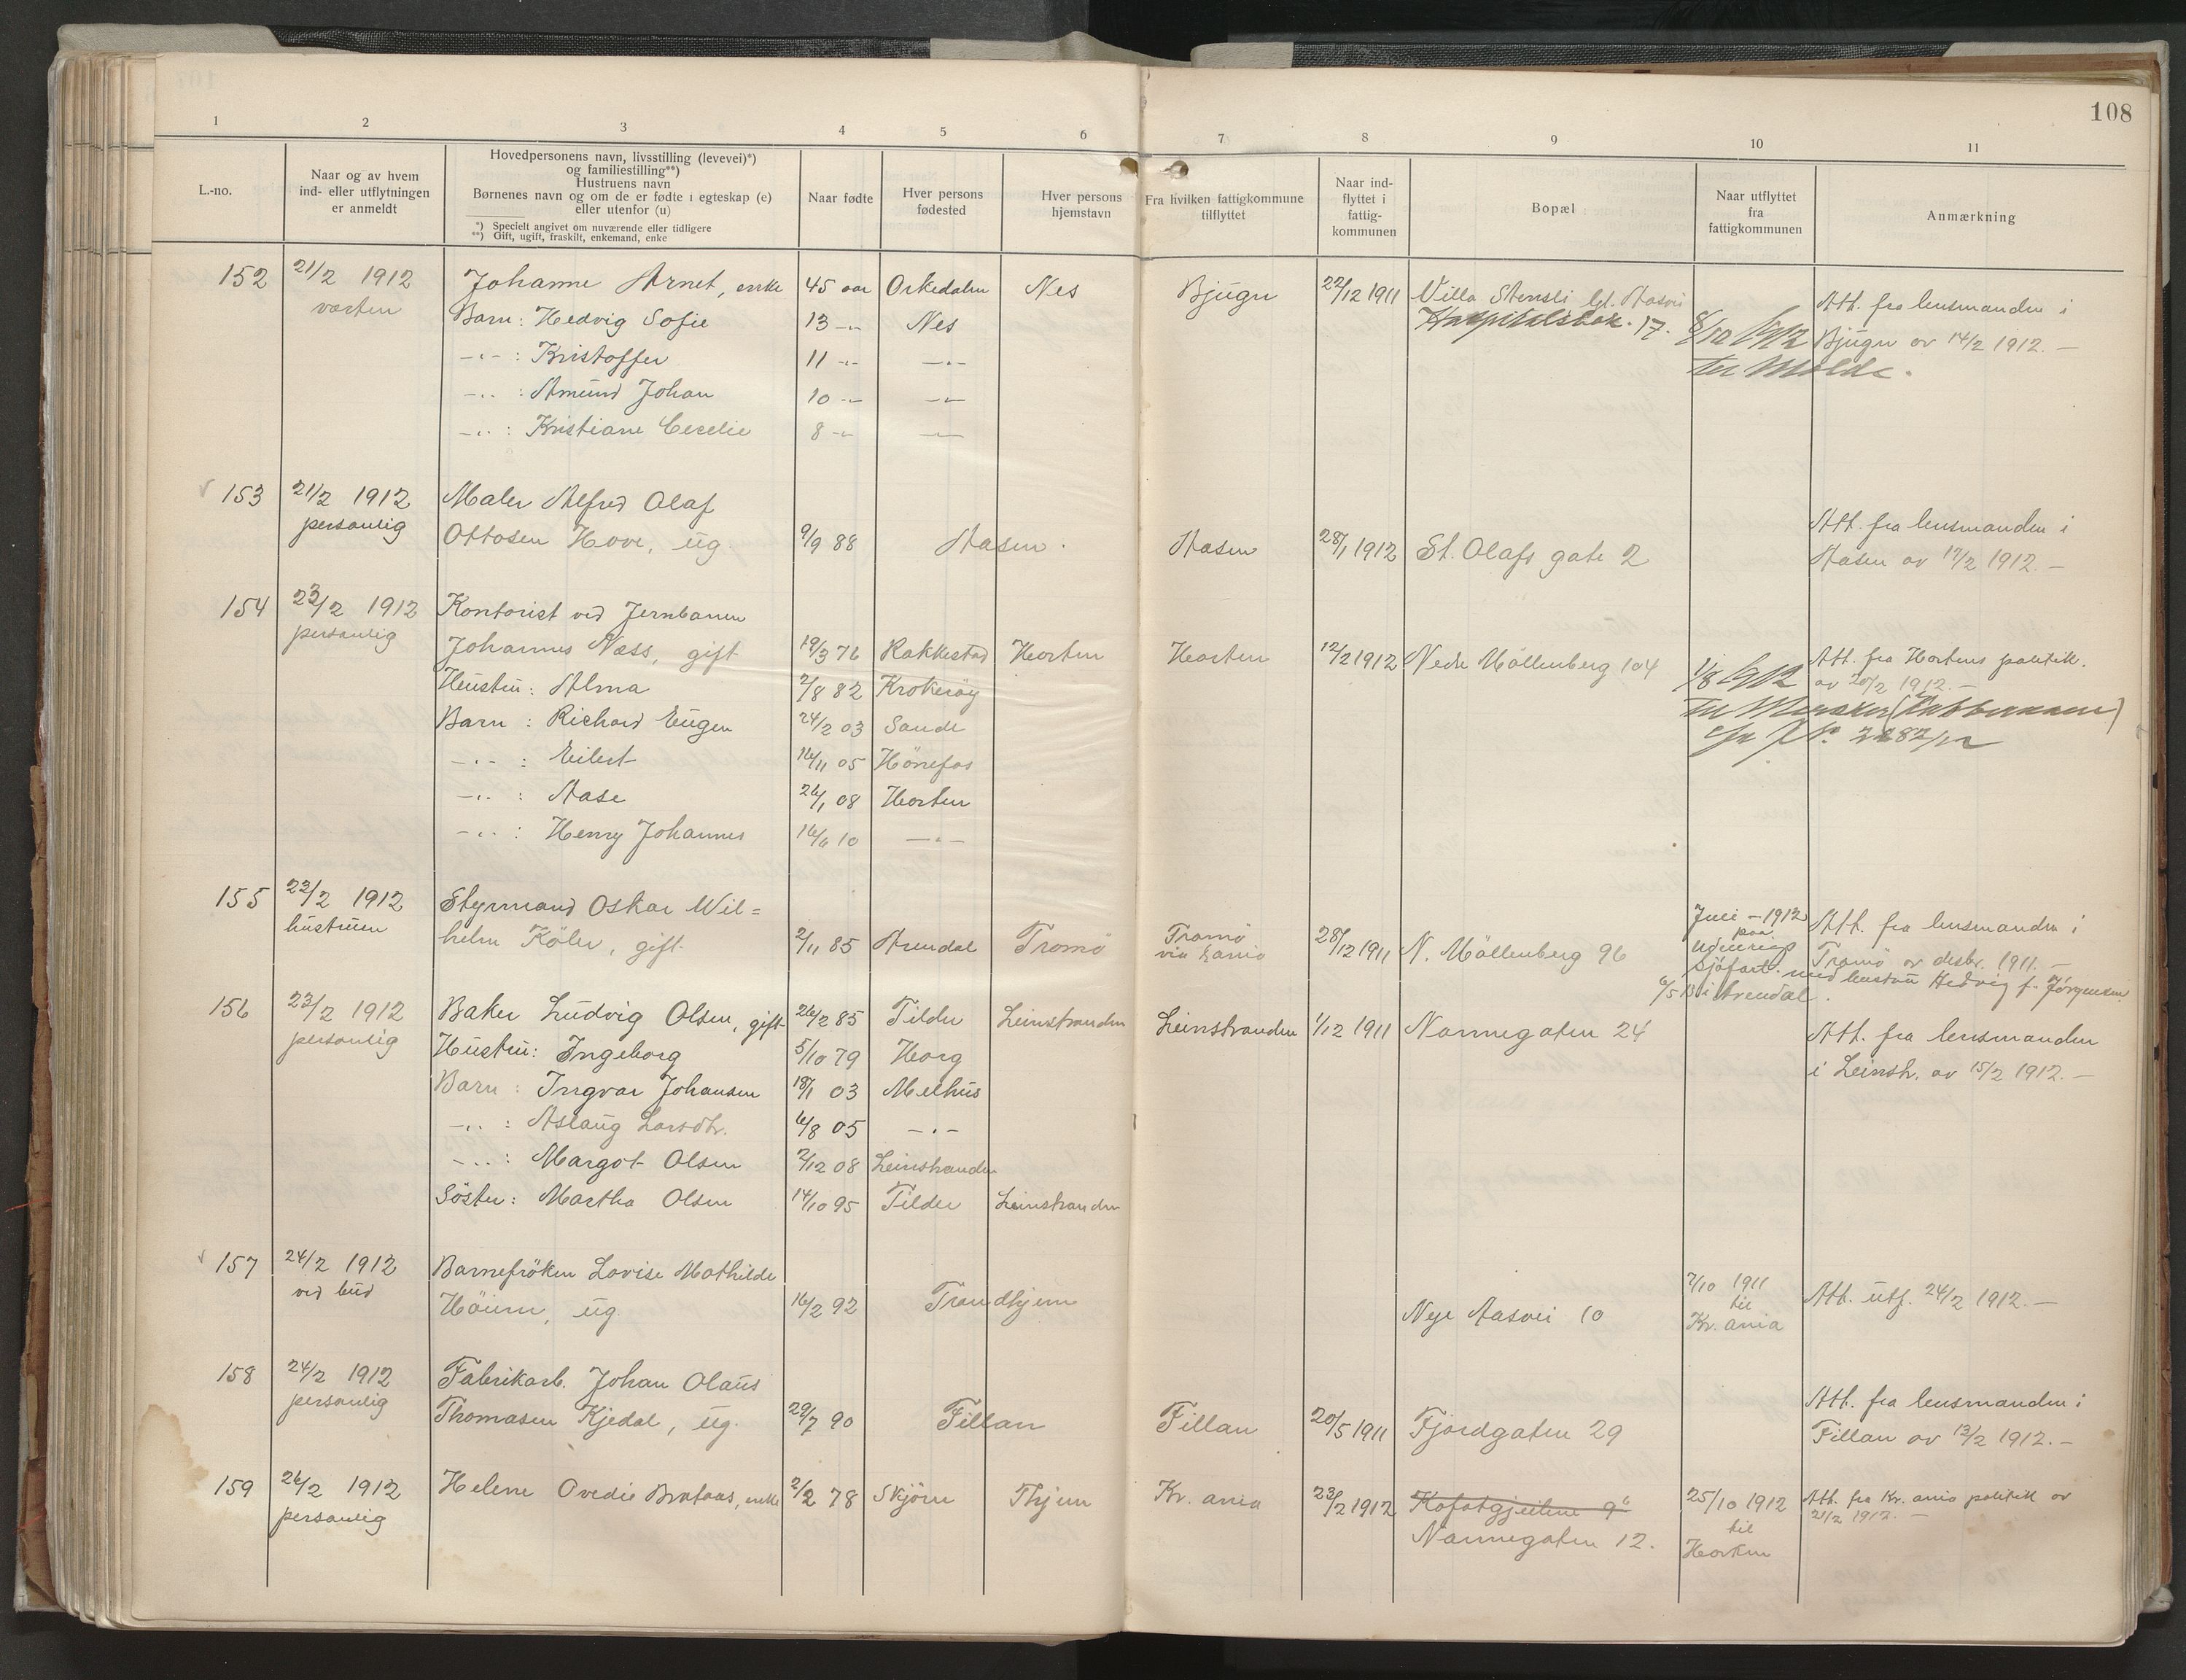 108
1 2 3 4 5 6 7 8 9 10 11
L.-no.
Naar og av hvem
ind- eller utflytningen
er anmeldt
Hovedpersonens navn, livsstilling (levevei)*)
og familiestilling**)
Hustruens navn
Børnenes navn og om de er fødte i egteskap (e)
eller utenfor (u)
*) Specielt angivet om nuværende eller tidligere
**) Gift, ugift, fraskilt, enkemand, enke
Naar fødte
Hver persons
fødested
Hver persons
hjemstavn
Fra hvilken fattigkommune
tilflyttet
Naar ind-
flyttet i
fattig-
kommunen
Bopæl
Naar utflyttet
fra
fattigkommunen
Anmærkning
152 21/2 1912 Johanne Arnet, enke 45 aar Orkedalen Nes Bjugn 22/12 1911 Villa Stensli Aasvei Att. fra lensmanden i
værten Barn: Hedvig Sofie 13 -"- Nes Hospitalsløk. 17. 8/10 1912 Bjugn av 14/2 1912. —
-"- : Kristoffer 11 -"- -"- til Molde.
-"- : Amund Johan 10 -"- -"-
-"- : Kristiane Cecelie 8 -"- -"-
153 21/2 1912 Maler Alfred Olaf
personlig Ottosen Hove, ug. 9/9 88 Aasen. Aasen 28/1 1912 St. Olafs gate 2 Att. fra lensmanden i
Aasen av 17/2 1912. —
154 23/2 1912 Kontorist ved Jernbanen
personlig Johannes Næss, gift 19/3 76 Rakkestad Horten Horten 12/2 1912 Nedr Möllenberg 104 1/8 1912 Att. fra Hortens politik.
Hustru: Alma 7/8 82 Krokerøy av 20/2 1912. —
Barn: Richard Eugen 24/2 03 Sande til
-"- : Eilert 16/11 05 Hönefos
-"- : Aase 26/1 08 Horten
-"- : Henry Johannes 10 -"-
155 23/2 1912 Styrmand Oskar Wil=
hustruen helm Köler, gift 2/11 85 Arendal Tromö Tromö 28/12 1911 N. Möllenberg 96 Juli - 1912 Att. fra lensmanden i
via Kr.ania paa
Udenrigs Tromö av desbr. 1911. —
sjöfart. med hustru Hedvig f. Jörgensen
6/5 13 i Arendal.
156 23/2 1912 Baker Ludvig Olsen, gift 26/2 85 Tilder Leinstranden Leinstranden 1/12 1911 Nonnegaten 24 Att. fra lensmanden
personlig Hustru: Ingeborg 5/10 79 Horg i Leinstr. av 15/2 1912. —
Barn: Ingvar Johansen 18/1 03 Melhus
-"- : Aslaug Larsdtr. 6/8 05 -"-
-"- : Margot Olsen 7/12 08 Leinstranden
Söster: Martha Olsen 14/10 95 Tilder Leinstranden
157 24/2 1912 Barnefröken Lovise Mathilde
ved bud Höium, ug. 16/2 92 Trondhjem Nye Aasvei 10 7/10 1911 Att. utf. 24/2 1912. —
til
Kr. ania
158 24/2 1912 Fabrikarb. Johan Olaus
personlig Thomasen Kjedal, ug. 29/7 90 Fillan Fillan 20/5 1911 Fjordgaten 29 Att. fra lensmanden i
Fillan av 13/2 1912. —
159 26/2 1912 Helene Ovedie Brataas, enke 2/2 78 Skjörn Thjem Kr. ania 23/2 1912 Kofotgjeitene 9b 25/10 1912 Att. fra Kr. ania politik av
personlig Nonnegaten 12. til 21/2 1912. —
Horten